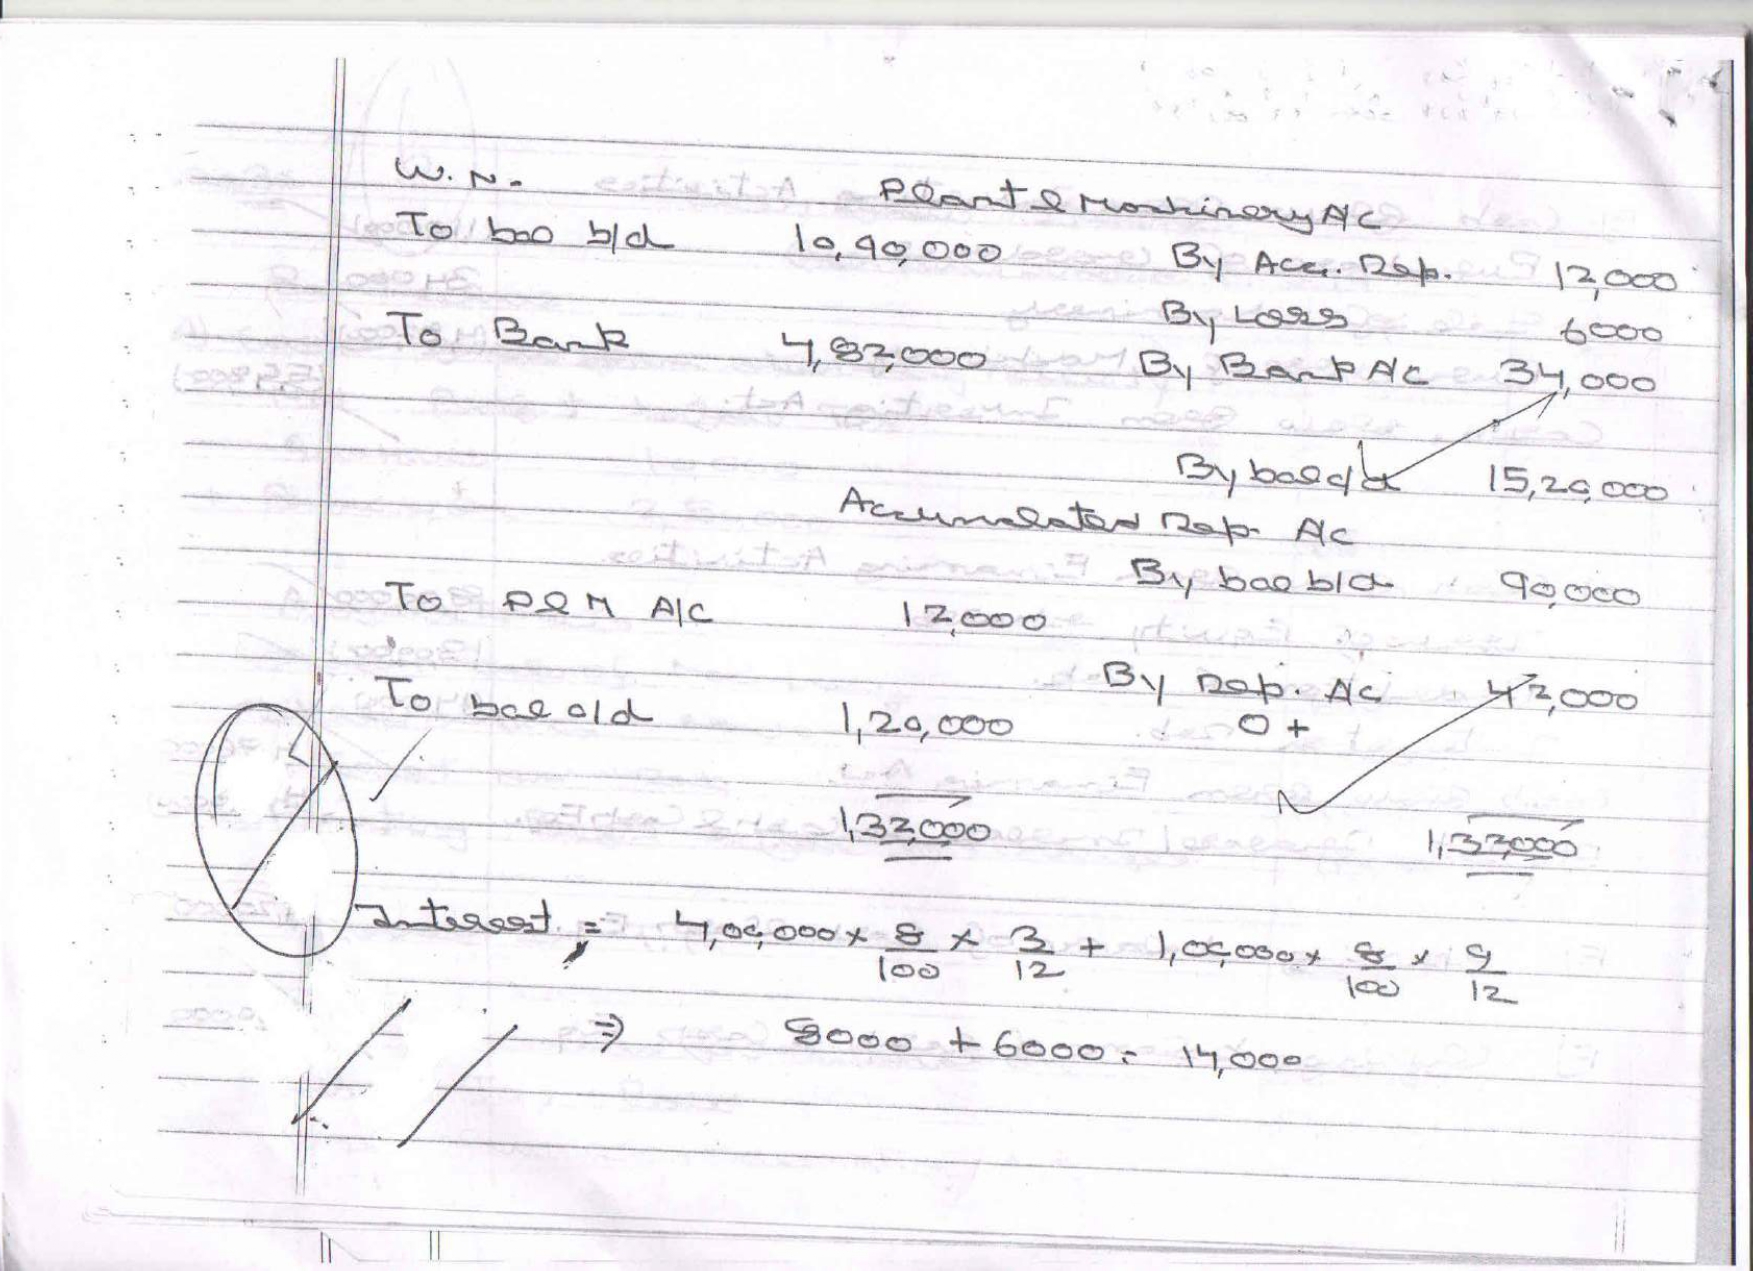 W.N. Plant & Machinery A/c
To bal b/d 10,90,000 By Acc. Dep. 12,000
By Loss 6000
To Bank 4,82,000 By Bank A/c 34,000
By bal c/d 15,20,000
Accumulated Dep. A/c
By bal b/d 90,000
To P&M A/C 12,000
By Dep. A/c 42,000
To bal c/d 1,20,000 0+
1,32,000 1,32,000
Interest = 4,00,000 × 8/100 × 3/12 + 1,00,000 × 8/100 × 9/12
⇒ 8000 + 6000 = 14,000